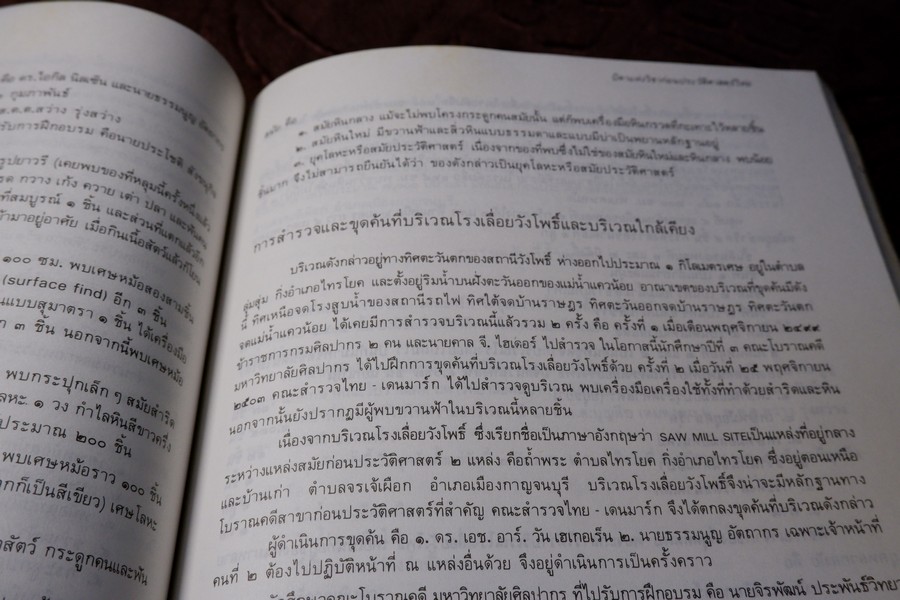 คือ ดร.ไอกิล นีลเซ็น และนายธรรมนูญ
กุมภาพันธ์
ส.ต.ต.สว่าง รุ่งสว่าง
รับการฝึกอบรม คือนายประโชติ
รูปยาวรี (เคยพบของที่หลุมนี้ครั้งหนึ่งแล้ว
รด กวาง เก้ง ควาย เต่า ปลา
ที่สมบูรณ์ ๑ ชิ้น และส่วนที่แตกแล้วอีก
ข้ามาอยู่อาศัย เมื่อกินเนื้อสัตว์แล้วก็โยน
๑๐๐ ซม. พบเศษหม้อสองสามชิ้น
(surface find) อีก ๓ ชิ้น
นแบบสุมาตรา ๑ ชิ้น ได้เครื่องมือ
ก ๓ ชิ้น นอกจากนี้พบเศษหม้อ
พบกระปุกเล็ก ๆ สมัยสำริด
ลหะ ๑ วง กำไลหินสีขาวครึ่ง
ประมาณ ๒๐๐ ชิ้น
พบเศษหม้อราว ๑๐๐ ชิ้น
ากก็เป็นสีเขียว) เศษโลหะ
ดสัตว์ กระดูกคนและฟัน
นิตาแสวิชาก่อนประวัติศาสตร์ไทย
สมัย คือ
๑. สมัยหินกลาง แม้จะไม่พบโครงกระดูกคนสมัยนั้น แต่ก็พบเครื่องมือหินกรวดที่กะเทาะไว้หลายชิ้น
๒. สมัยหินใหม่ มีขวานฟ้าและสิ่วหินแบบธรรมดาและแบบมีบ่าเป็นพยานหลักฐานอยู่
๓. ยุคโลหะหรือสมัยประวัติศาสตร์ เนื่องจากของที่พบซึ่งไม่ใช่ของสมัยหินใหม่และหินกลาง พบน้อย
ชิ้นมาก จึงไม่สามารถยืนยันได้ว่า ของดังกล่าวเป็นยุคโลหะหรือสมัยประวัติศาสตร์
การสำรวจและขุดค้นที่บริเวณโรงเลื่อยวังโพธิ์และบริเวณใกล้เคียง
บริเวณดังกล่าวอยู่ทางทิศตะวันตกของสถานีวังโพธิ์ ห่างออกไปประมาณ ๑ กิโลเมตรเศษ อยู่ในตำบล
ลุ่มสุ่ม กิ่งอำเภอไทรโยค และตั้งอยู่ริมน้ำบนฝั่งตะวันออกของแม่น้ำแควน้อย อาณาเขตของบริเวณที่ขุดค้นมีดัง
นี้ ทิศเหนือจดโรงสูบน้ำของสถานีรถไฟ ทิศใต้จดบ้านราษฎร ทิศตะวันออกจดบ้านราษฎร ทิศตะวันตก
จดแม่น้ำแควน้อย ได้เคยมีการสำรวจบริเวณนี้แล้วรวม ๒ ครั้ง คือ ครั้งที่ ๑ เมื่อเดือนพฤศจิกายน ๒๔๙๙
ข้าราชการกรมศิลปากร ๒ คน และนายคาล จี. ไฮเดอร์ ไปสำรวจ ในโอกาสนี้นักศึกษาปีที่ ๓ คณะโบราณคดี
มหาวิทยาลัยศิลปากร ได้ไปฝึกการขุดค้นที่บริเวณโรงเลื่อยวังโพธิ์ด้วย ครั้งที่ ๒ เมื่อวันที่ ๒๕ พฤศจิกายน
๒๕๐๓ คณะสำรวจไทย - เดนมาร์ก ได้ไปสำรวจดูบริเวณ พบเครื่องมือเครื่องใช้ทั้งที่ทำด้วยสำริดและหิน
นอกจากนั้นยังปรากฏมีผู้พบขวานฟ้าในบริเวณนี้หลายชิ้น
เนื่องจากบริเวณโรงเลื่อยวังโพธิ์ ซึ่งเรียกชื่อเป็นภาษาอังกฤษว่า SAW MILL SITEเป็นแหล่งที่อยู่กลาง
ระหว่างแหล่งสมัยก่อนประวัติศาสตร์ ๒ แหล่ง คือถ้ำพระ ตำบลไทรโยค กิ่งอำเภอไทรโยค ซึ่งอยู่ตอนเหนือ
และบ้านเก่า ตำบลจรเข้เผือก อำเภอเมืองกาญจนบุรี บริเวณโรงเลื่อยวังโพธิ์จึงน่าจะมีหลักฐานทาง
โบราณคดีสาขาก่อนประวัติศาสตร์ที่สำคัญ คณะสำรวจไทย - เดนมาร์ก จึงได้ตกลงขุดค้นที่บริเวณดังกล่าว
ผู้ดำเนินการขุดค้น คือ ๑. ดร. เอช. อาร์. วัน เฮเกอเร็น ๒. นายธรรมนูญ อัตถากร เฉพาะเจ้าหน้าที่
คนที่ ๒ ต้องไปปฏิบัติหน้าที่ ณ แหล่งอื่นด้วย จึงอยู่ดำเนินการเป็นครั้งคราว
นักศึกษาคณะโบราณคดี มหาวิทยาลัยศิลปากร ที่ไปรับการฝึกอบรม คือ นายจิรพัฒน์ ประพันธ์วิทยา